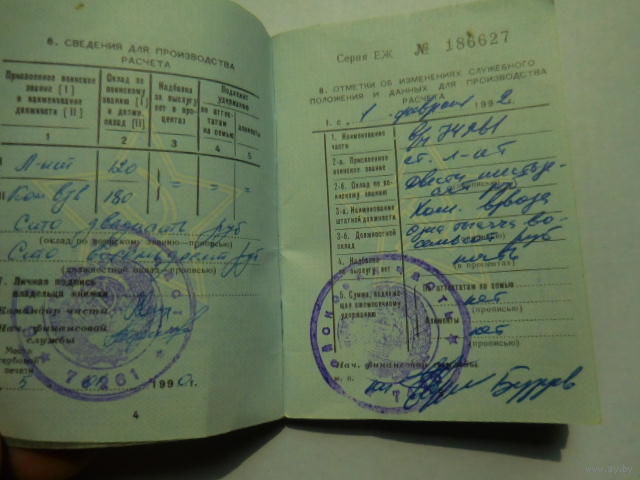 6. СВЕДЕНИЯ ДЛЯ ПРОИЗВОДСТВА
РАСЧЕТА
Присвоенное воинское звание [I] и наименование должности [II]
Оклад по воинскому званию [I] и должн. оклад [II]
Надбавка за выслугу лет в процентах
Подлежит удержанию
по аттестатам на семью
алименты
1 2 3 4 5
Л-нт 120
Ком взв 180
Сто двадцать руб
(оклад по воинскому званию—прописью)
Сто восемьдесят руб
(должностной оклад—прописью)
7. Личная подпись
владельца книжки
Командир части
Нач. финансовой
службы
Место гербовой печати
5 1990г.
4
Серия ЕЖ № 186627
8. ОТМЕТКИ ОБ ИЗМЕНЕНИЯХ СЛУЖЕБНОГО
ПОЛОЖЕНИЯ И ДАННЫХ ДЛЯ ПРОИЗВОДСТВА
РАСЧЕТА
1. с 1 февраля 1992.
1. Наименование части в/ч 74261
2-а. Присвоенное воинское звание ст. л-нт
2-б. Оклад по воинскому званию Двести
руб
(прописью)
3-а. Наименование штатной должности Ком. взвода
3-б. Должностной оклад Одна тысяча восемьсот руб
(прописью)
4. Надбавка за выслугу лет
(в процентах)
5. Сумма, подлежащая ежемесячному удержанию
По аттестатам на семью
нет
(прописью)
Алименты
нет
(прописью)
Нач. финансовой службы
м. п.
74261
www.ay.by